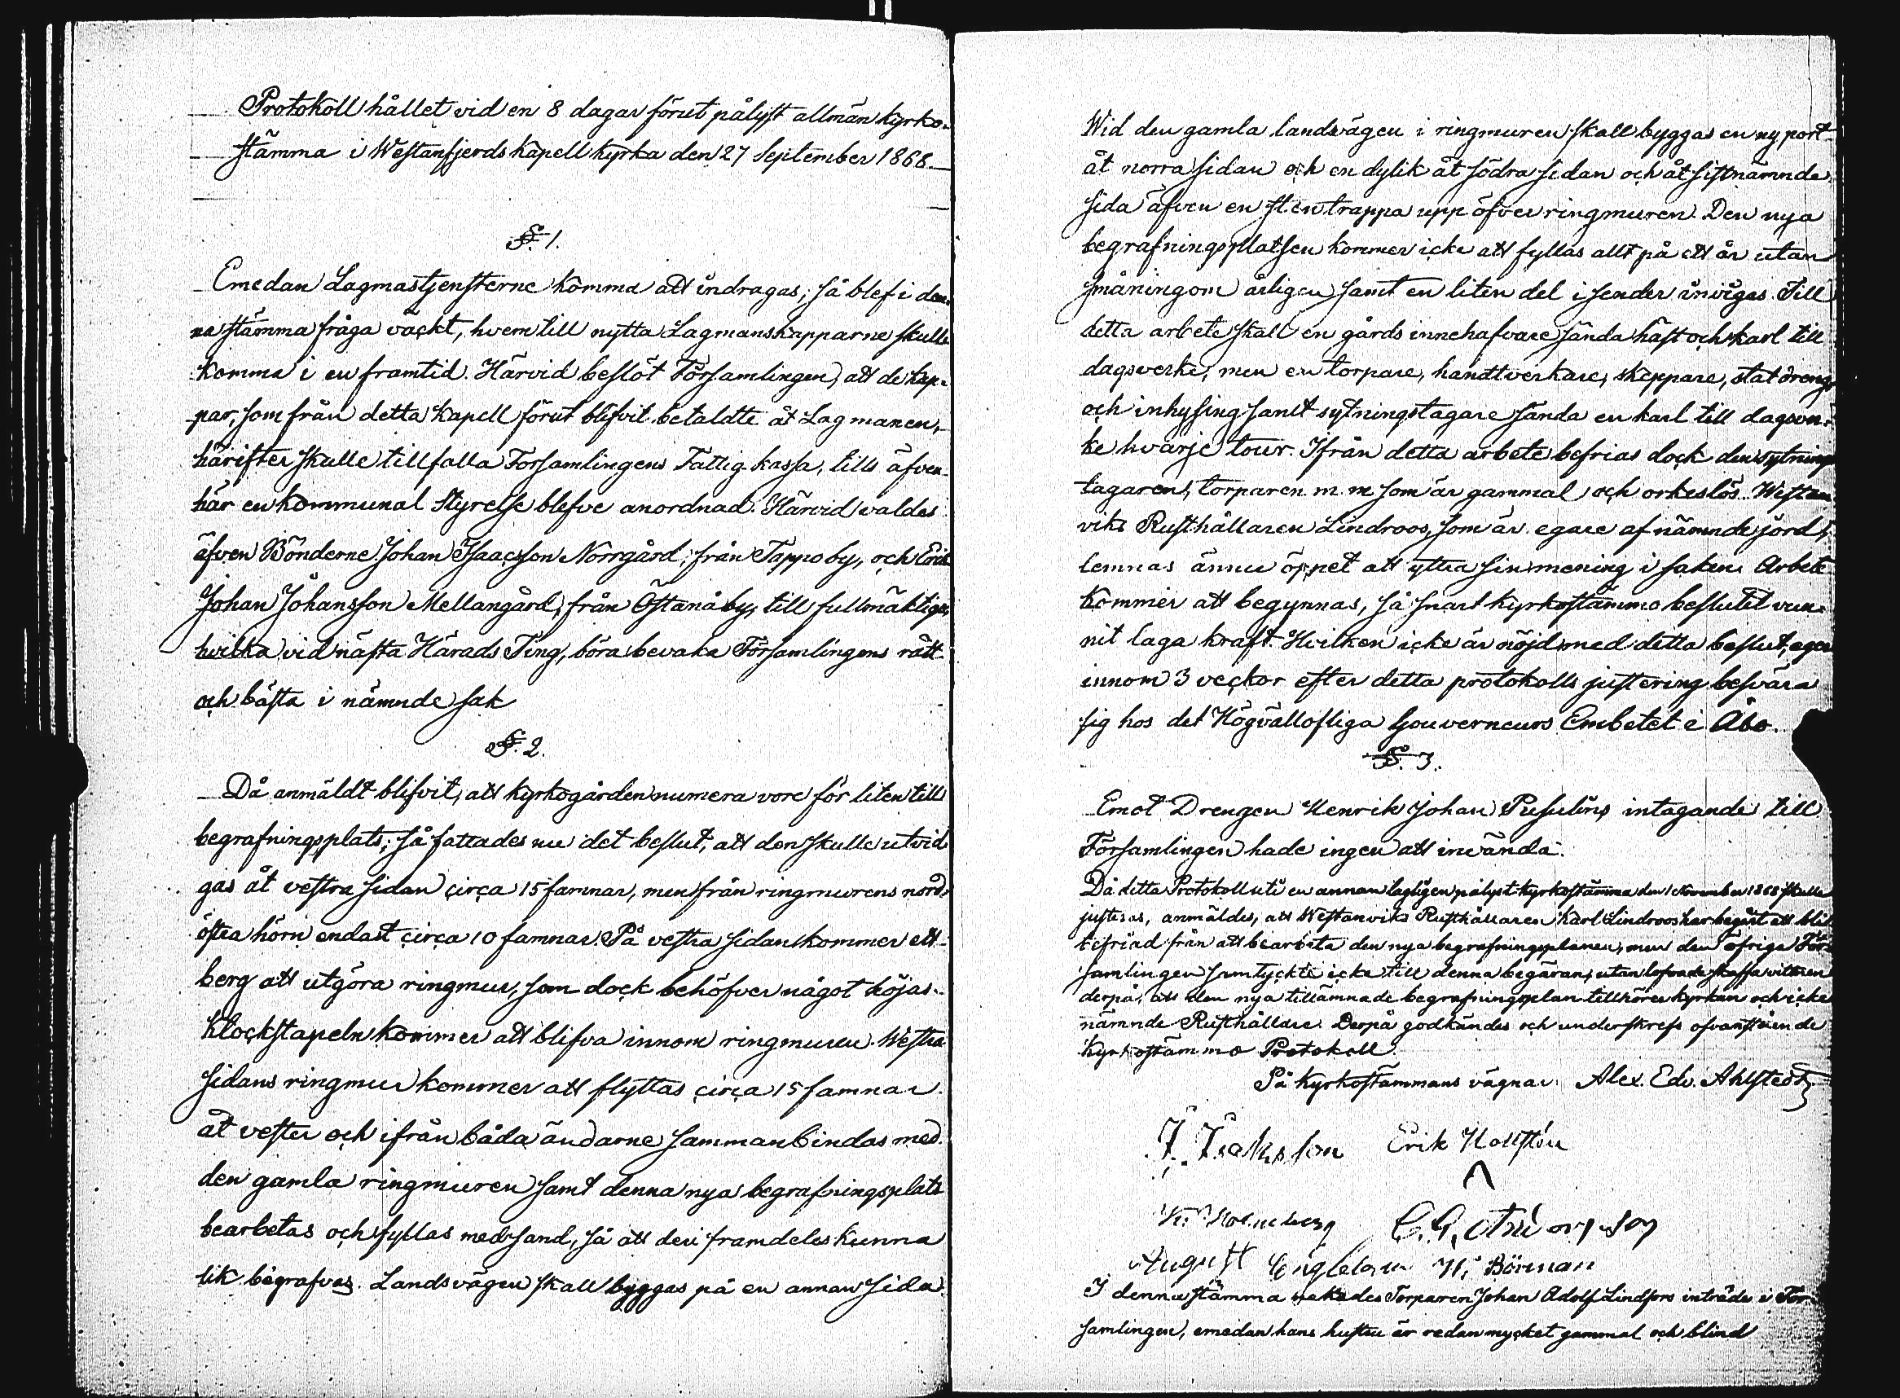 Protokoll hållet vid en 8 dagar förut pålyst allmän kyrko-
stämma i Westanfjerds Kapell kyrka den 27 September 1868
§. 1.
Emedan Lagmastjensterne komma att indragas, så blef i den-
na stämma fråga väckt, hvem till nytta Lagmanskapparne skulle
komma i en framtid. Härvid beslöt Församlingen, att de kap-
par, som från detta Kapell förut blifvit betaldte åt Lagmanen,
härifter skulle tillfalla Församlingens Fattig kassa, tills äfven
här en kommunal Styrelse blefve anordnad. Härvid valdes
äfven Bönderne Johan Isaacsson Norrgård, från Tappo by, och Erik
Johan Johansson Mellangård, från Östanå by, till fullmäktige,
hvilka vid nästa Härads Ting, böra bevaka Församlingens rätt
och bästa i nämnde sak
§. 2.
Då anmäldt blifvit, att kyrkogården numera vore för liten till
begrafningsplats, så fattades nu det beslut, att den skulle utvid
gas åt vestra sidan circa 15 famnar, men från ringmurens nord-
östra hörn endast circa 10 famnar. På vestra sidan kommer ett
berg att utgöra ringmur, som dock behöfver något höjas.
Klockstapeln kommer att blifva innom ringmuren. Westra
sidans ringmur kommer att flyttas circa 15 famnar
åt vester och ifrån båda ändarne sammanbindas med
den gamla ringmuren samt denna nya begrafningsplats
bearbetas och fyllas med sand, så att deri framdeles kunna
lik begrafvas. Landsvägen skall byggas på en annan sida.
Wid den gamla landsvägen i ringmuren skall byggas en ny port
åt norra sidan och en dylik åt södra sidan och åt sistnämnde
sida äfven en stentrappa upp öfver ringmuren. Den nya
begrafningsplatsen kommer icke att fyllas allt på ett år utan
småningom årligen samt en liten del i sender invigas. Till
detta arbete skall en gårds innehafvare sända häst och karl till
dagsverke, men en torpare, handtverkare, skeppare, statdreng
och inhysing samt sytningstagare sända en karl till dagsver-
ke hvarje tour. Ifrån detta arbete befrias dock den sytnings
tagaren, torparen m. m som är gammal och orkeslös. Westan
viks Rusthållaren Lindroos, som är egare af nämnde jord,
lemnas ännu öppet att yttra sin mening i saken. Arbete
kommer att begynnas, så snart kyrkostämmo beslutet vun-
nit laga kraft. Hvilken icke är nöjd med detta beslut, eger
innom 3 veckor efter detta protokolls justering besvära
sig hos det Högvällofliga Gouverneurs Embetet i Åbo.
§. 3.
Emot Drengen Henrik Johan intagande till
Församlingen hade ingen att invända.
Då detta Protokoll uti en annan lagligen pålyst kyrkostämma den 1 November 1868 skulle
justeras, anmäldes, att Westanviks Rusthållaren Karl Lindroos har begärt att bli
befriad från att bearbeta den nya begrafningsplanen, men den öfriga För-
samlingen samtyckte icke till denna begäran, utan lofvade skaffa vittnen
derpå, att den nya tillämnade begrafningsplan tillhörer kyrkan och icke
nämnde Rusthållare. Derpå godkändes och underskrefs ofvanstående
Kyrkostämmo Protokoll.
På kyrkostämmans vägnar: Alex. Edv. Ahlstedt
J. Isaksson Erik Hollstén
Holmberg C. G.
August Engblom Börman
I denna stämma nekades Torparen Johan Adolf Lindfors inträde i För-
samlingen, emedan hans hustru är redan mycket gammal och blind